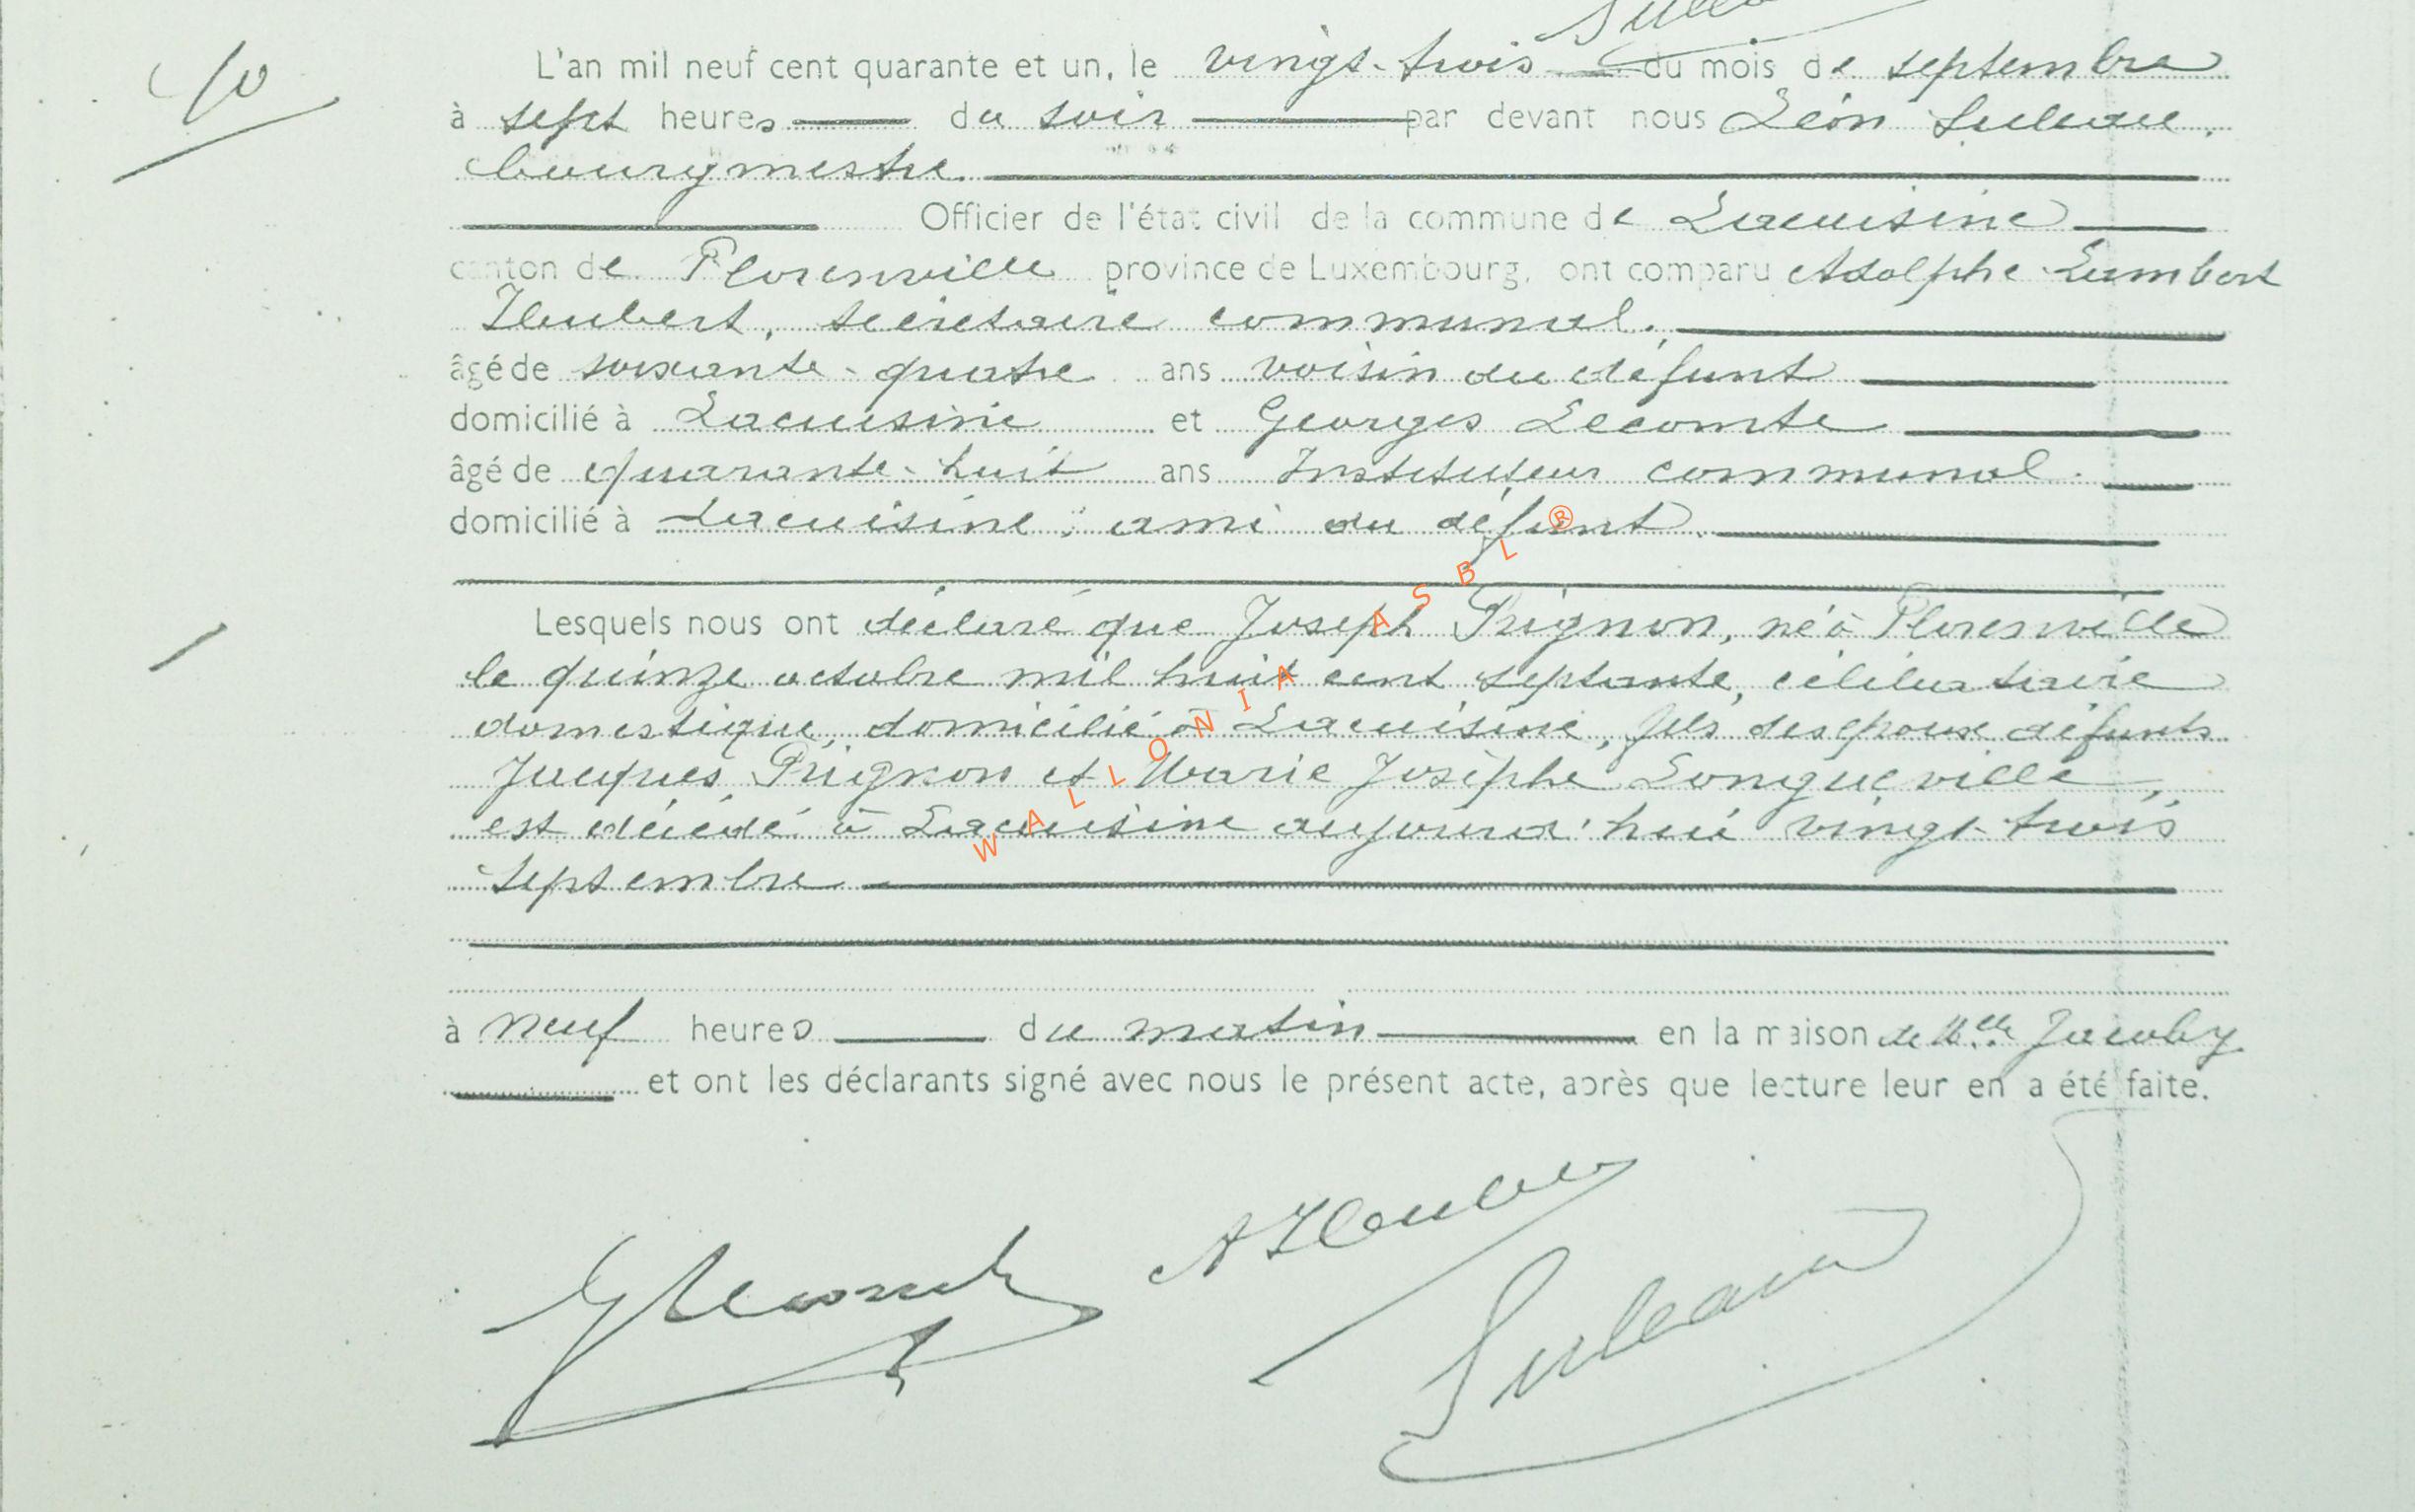 10
L'an mil neuf cent quarante et un, le vingt-trois du mois de septembre
à sept heures du soir par devant nous Léon Suleau,
bourgmestre.
Officier de l'état civil de la commune de Lacuisine
canton de Florenville province de Luxembourg, ont comparu Adolphe Lambert
Houbert, secrétaire communal.
âgé de soixante-quatre ans voisin du défunt
domicilié à Lacuisine et Georges Lecomte
âgé de quarante-huit ans Instituteur communal.
domicilié à Lacuisine, ami du défunt.
Lesquels nous ont déclaré que Joseph Prignon, né à Florenville
le quinze octobre mil huit cent septante, célibataire
domestique, domicilié à Lacuisine, fils des époux défunts
Jacques Prignon et Marie Josèphe Longueville,
est décédé à Lacuisine aujourd'hui vingt-trois
septembre
à neuf heures du matin en la maison de Melle Jacoby
et ont les déclarants signé avec nous le présent acte, après que lecture leur en a été faite.
WALLONIA ASBL ®
GLecomte
Suleau